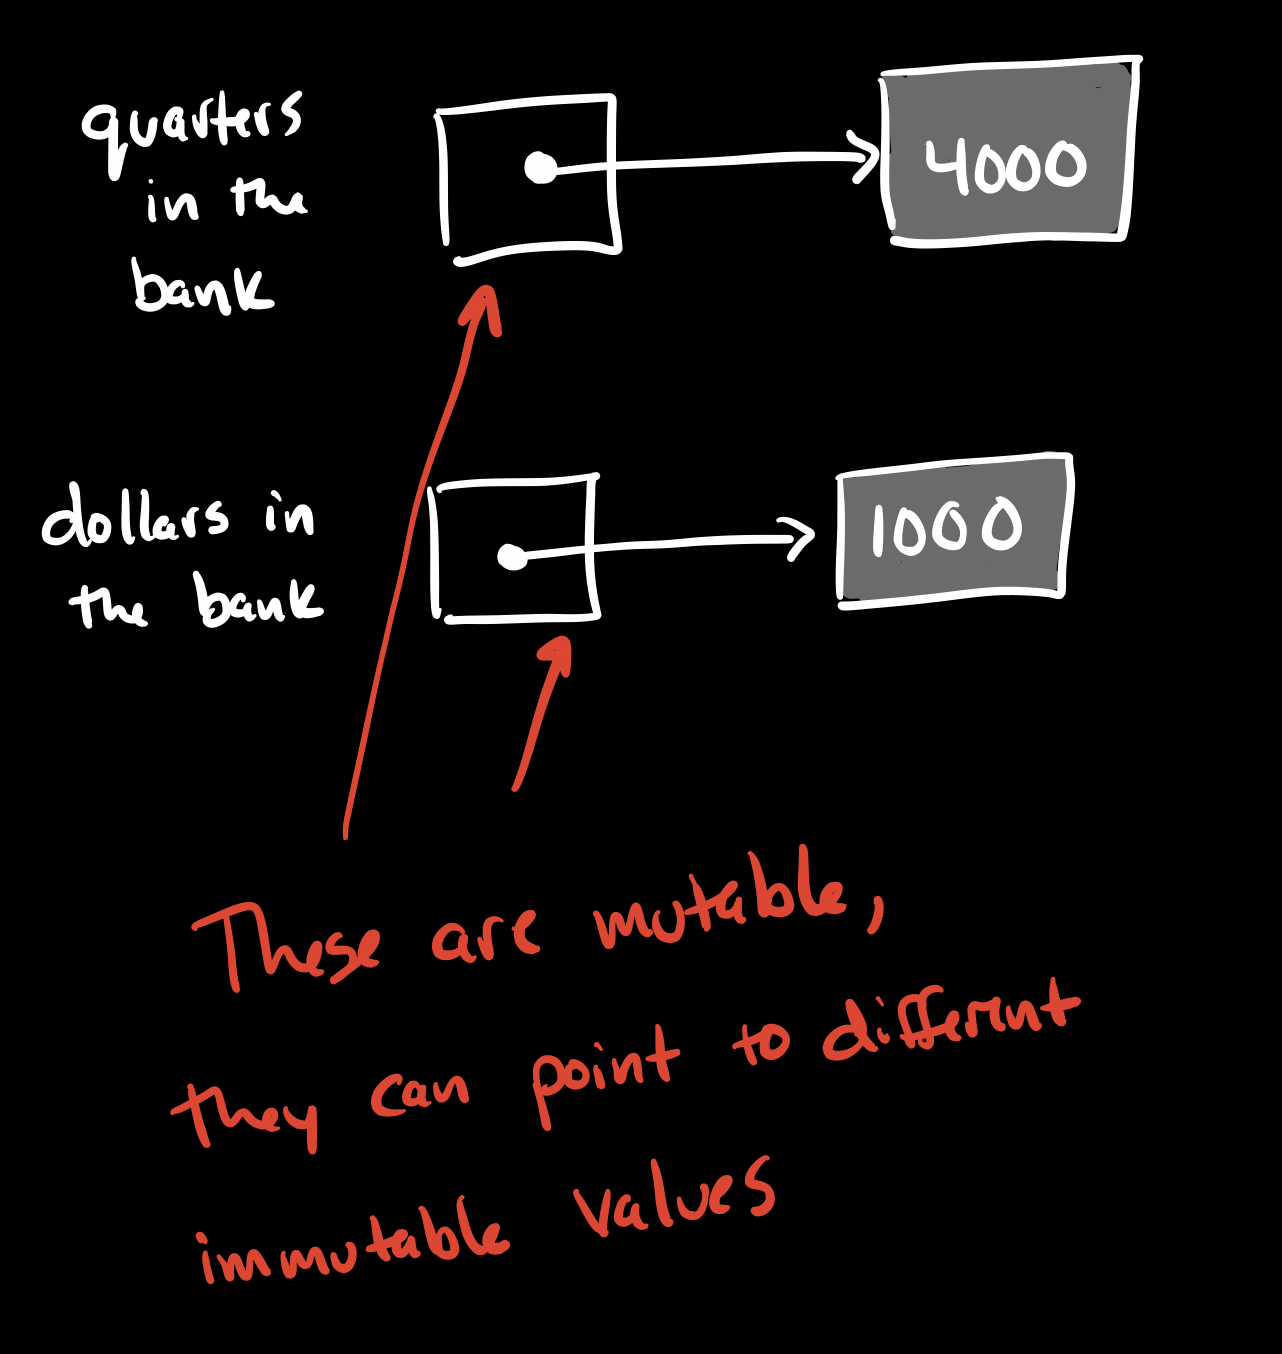 quarters
in the
bank
4000
dollars in
the bank
1000
These are mutable,
they can point to different
immutable values